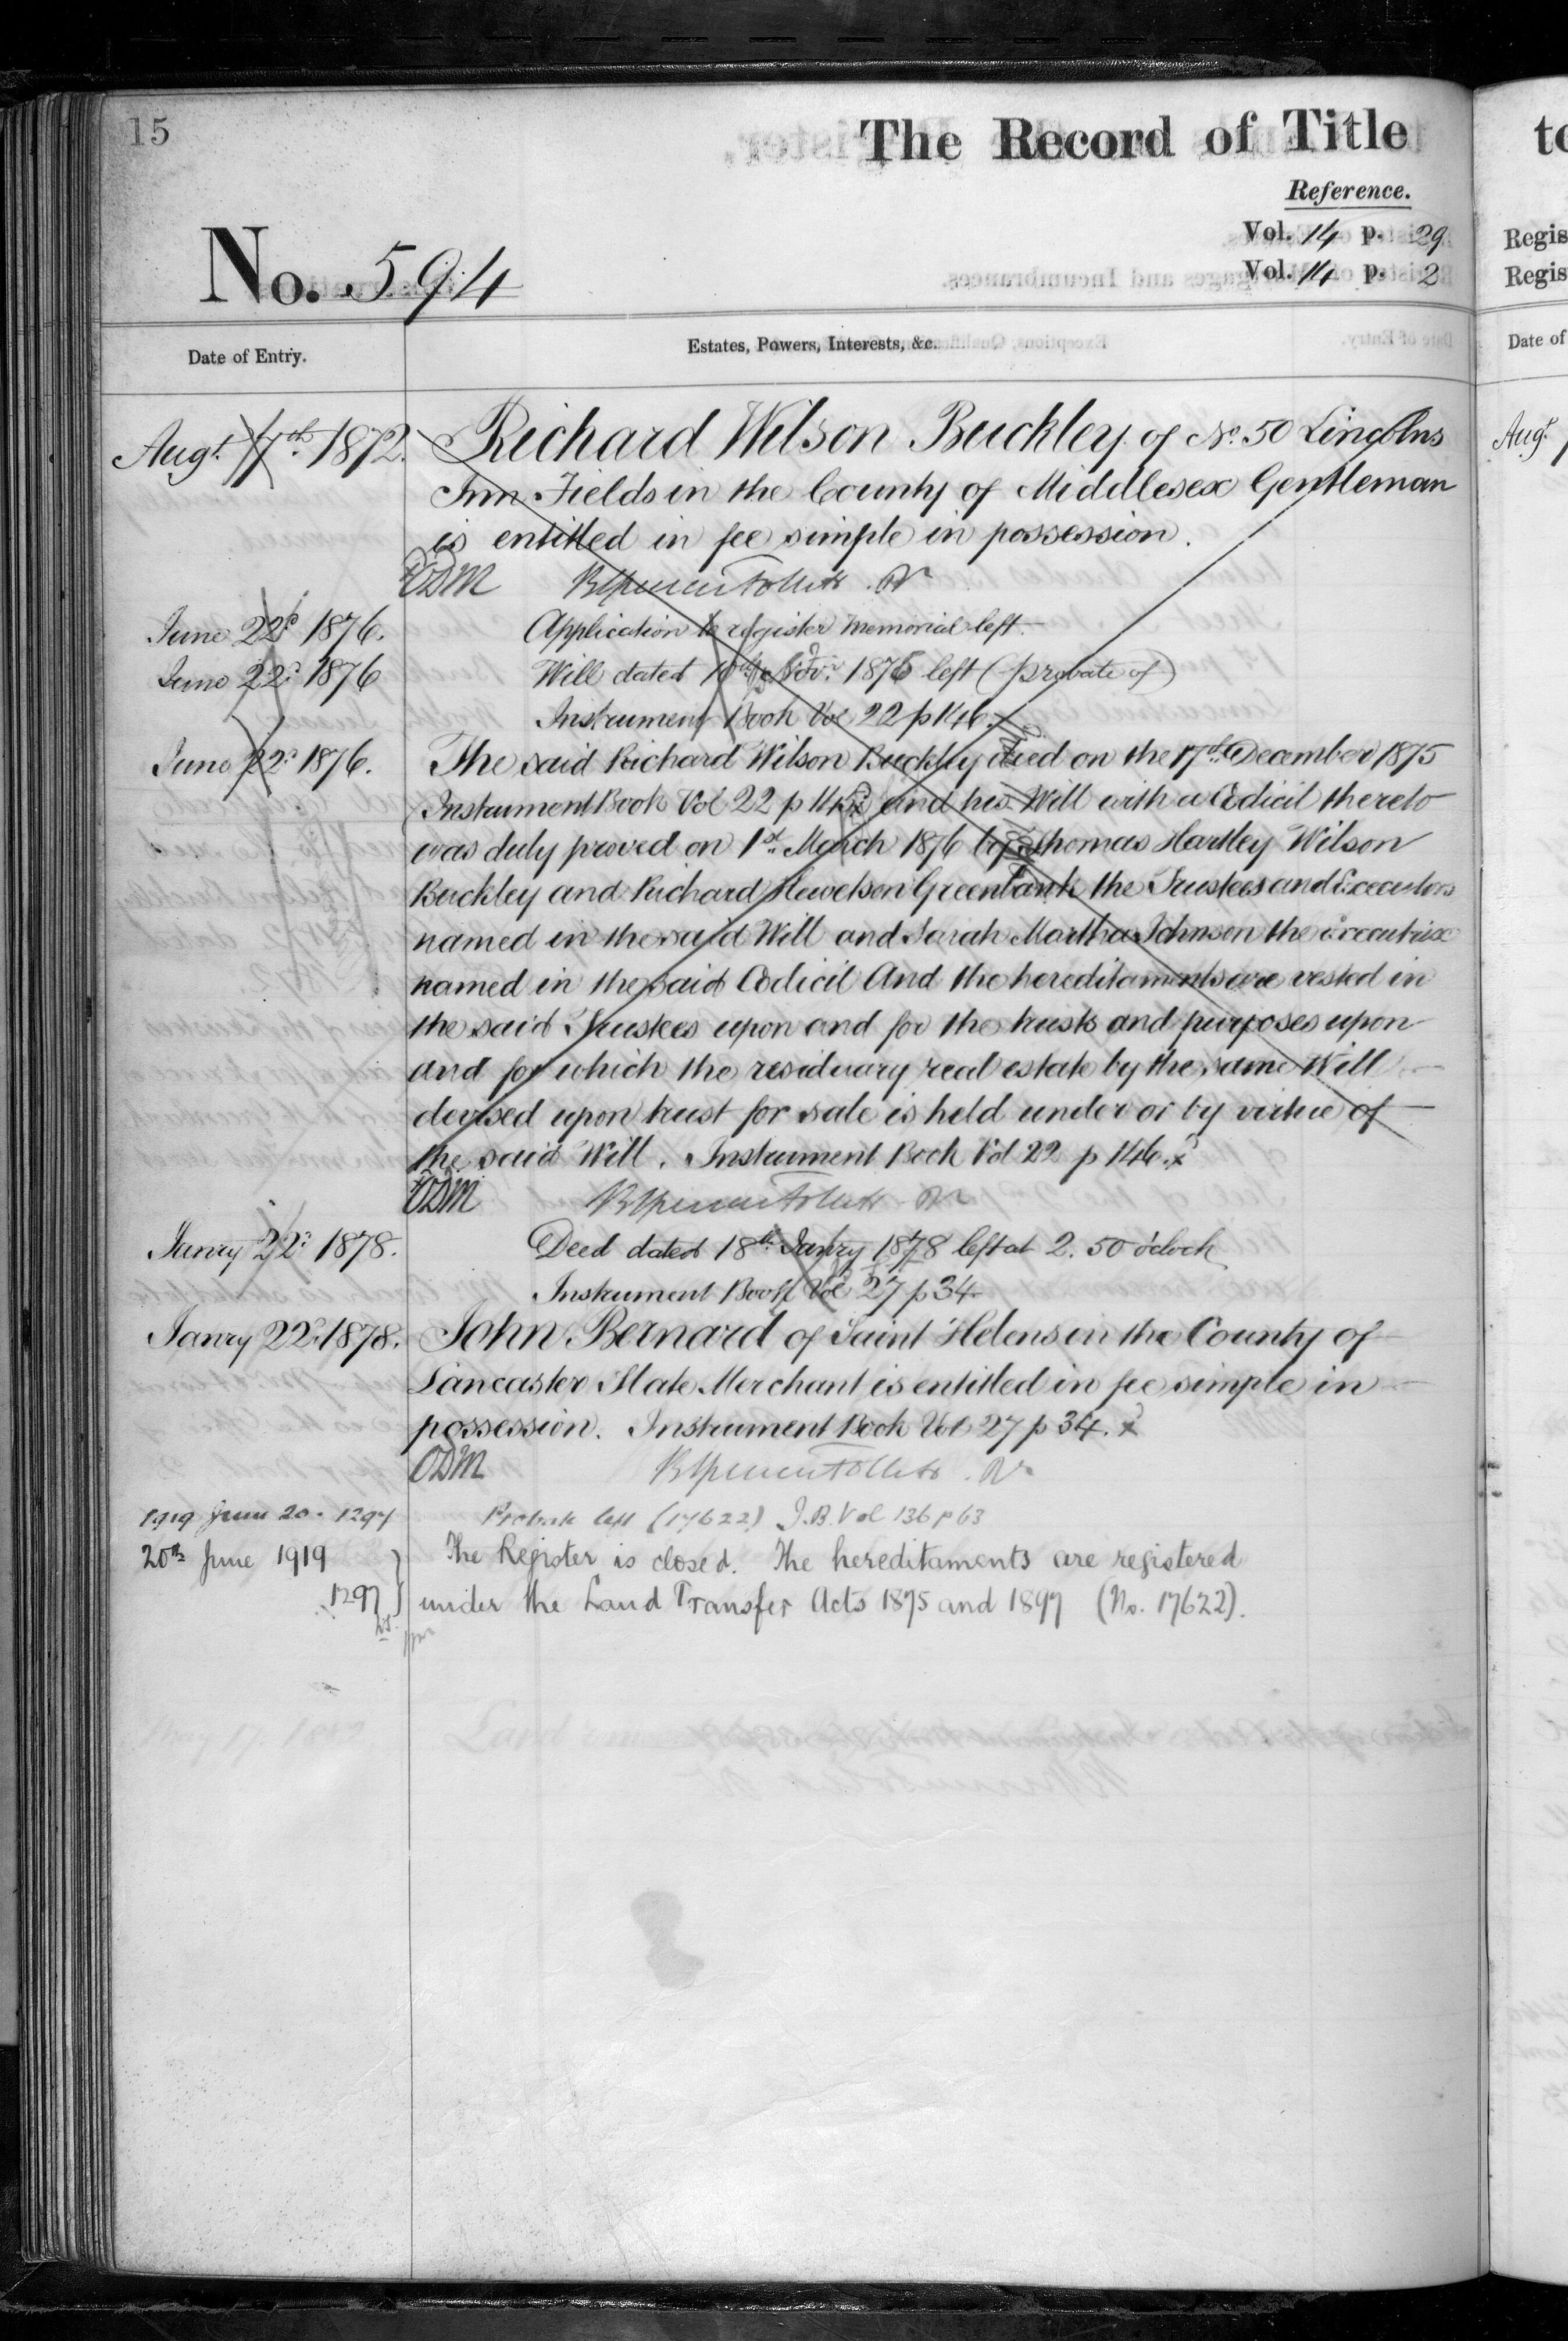 15
The Record of Title
Reference.
Vol. 14 p. 29
Vol. 14 p. 2
No. 594
Date of Entry.
Estates, Powers, Interests, &c.
Augt. 7th. 1872. Richard Wilson Buckley of No. 50 Lincolns
Inn Fields in the County of Middlesex Gentleman
is entitled in fee simple in possession.
June 22d 1876. Application to register memorial left.
June 22d 1876 Will dated Novr. 1875 left (probate of)
Instrument Book Vol 22 p 146.
June 22d 1876. The said Richard Wilson Buckley died on the 17th December 1875
Instrument Book Vol 22 p 145 and his Will with a Codicil thereto
was duly proved on 1st. March 1876 by Thomas Hartley Wilson
Buckley and Richard Hewetson Greenbank the Trustees and Executors
named in the said Will and Sarah Martha Johnson the Executrix
named in the said Codicil And the hereditaments are vested in
the said Trustees upon and for the trusts and purposes upon
and for which the residuary real estate by the same Will
devised upon trust for sale is held under or by virtue of
the said Will. Instrument Book Vol 22 p 146.
Janry 22d 1878. Deed dated 18th Janry 1878 left at 2.50 o'clock
Instrument Book Vol 27 p 34
Janry 22d 1878. John Bernard of Saint Helens in the County of
Lancaster Slate Merchant is entitled in fee simple in
possession. Instrument Book Vol 27 p 34.
ODM
1919 June 20. 1297 Probate left (17622) I.B. Vol 136 p 63
20th June 1919 The Register is closed. The hereditaments are registered
1297 under the Land Transfer Acts 1875 and 1897 (No. 17622).
to
Regis
Regis
Date of
Augt.